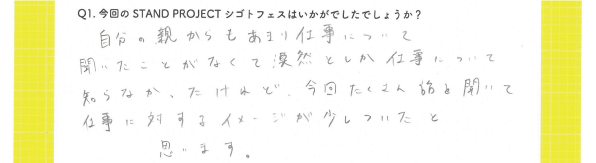 Q1. 今回の STAND PROJECT シゴトフェスはいかがでしたでしょうか？
自分の親からもあまり仕事について
聞いたことがなくて漠然としか仕事について
知らなかったけれど、今回たくさん話を聞いて
仕事に対するイメージが少しついたと
思います。